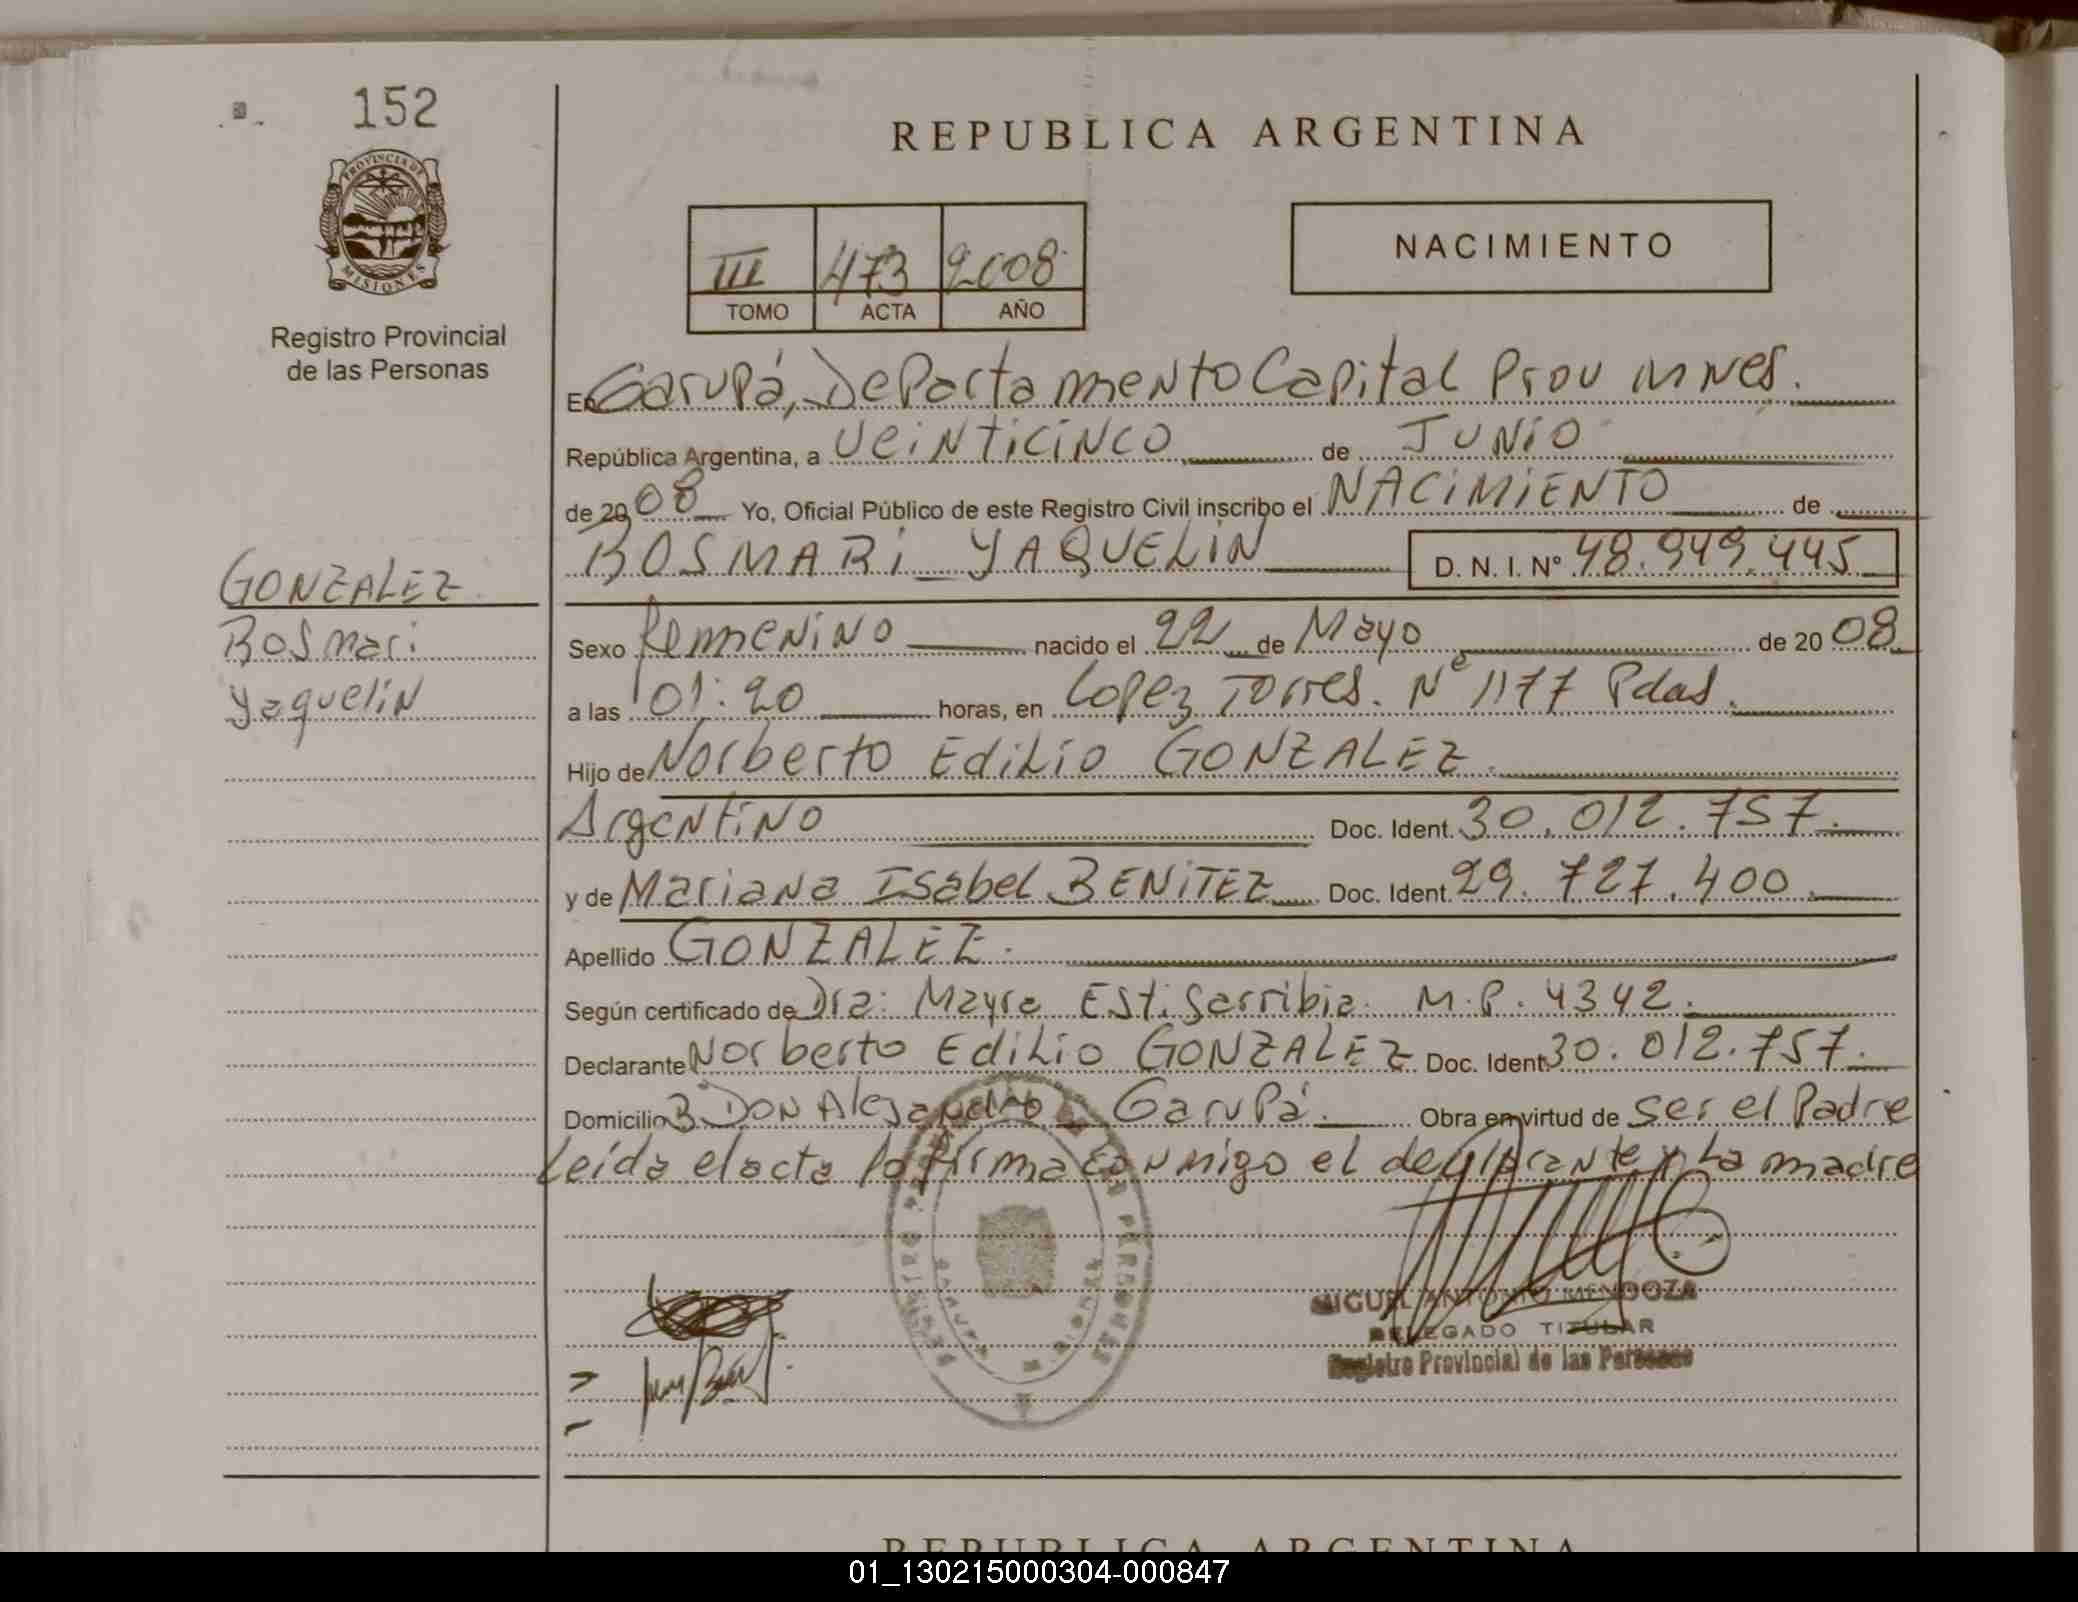 152
PROVINCIA DE
MISIONES
Registro Provincial
de las Personas
REPUBLICA ARGENTINA
III 473 2008
TOMO ACTA AÑO
NACIMIENTO
En Garupá, Departamento Capital Prov Mnes.
República Argentina, a veinticinco de JUNIO
de 2008 Yo, Oficial Público de este Registro Civil inscribo el NACIMIENTO de
ROSMARI YAQUELIN D. N. I. Nº 48.949.445
GONZALEZ
Rosmari
Yaquelin
Sexo Femenino nacido el 22 de Mayo de 2008
a las 01:20 horas, en Lopez Torres. Nº 1177 Pdas.
Hijo de Norberto Edilio GONZALEZ.
Argentino Doc. Ident. 30.012.757.
y de Mariana Isabel BENITEZ Doc. Ident. 29.727.400.
Apellido GONZALEZ.
Según certificado de Dra: Mayra Estigarribia. M.P. 4342.
Declarante Norberto Edilio GONZALEZ Doc. Ident. 30.012.757.
Domicilio B Don Alejandro Garupá. Obra en virtud de ser el Padre
Leída el acta la firma conmigo el declarante y la madre
MIGUEL ANTONIO MENDOZA
DELEGADO TITULAR
Registro Provincial de las Personas
REPUBLICA ARGENTINA
01_130215000304-000847